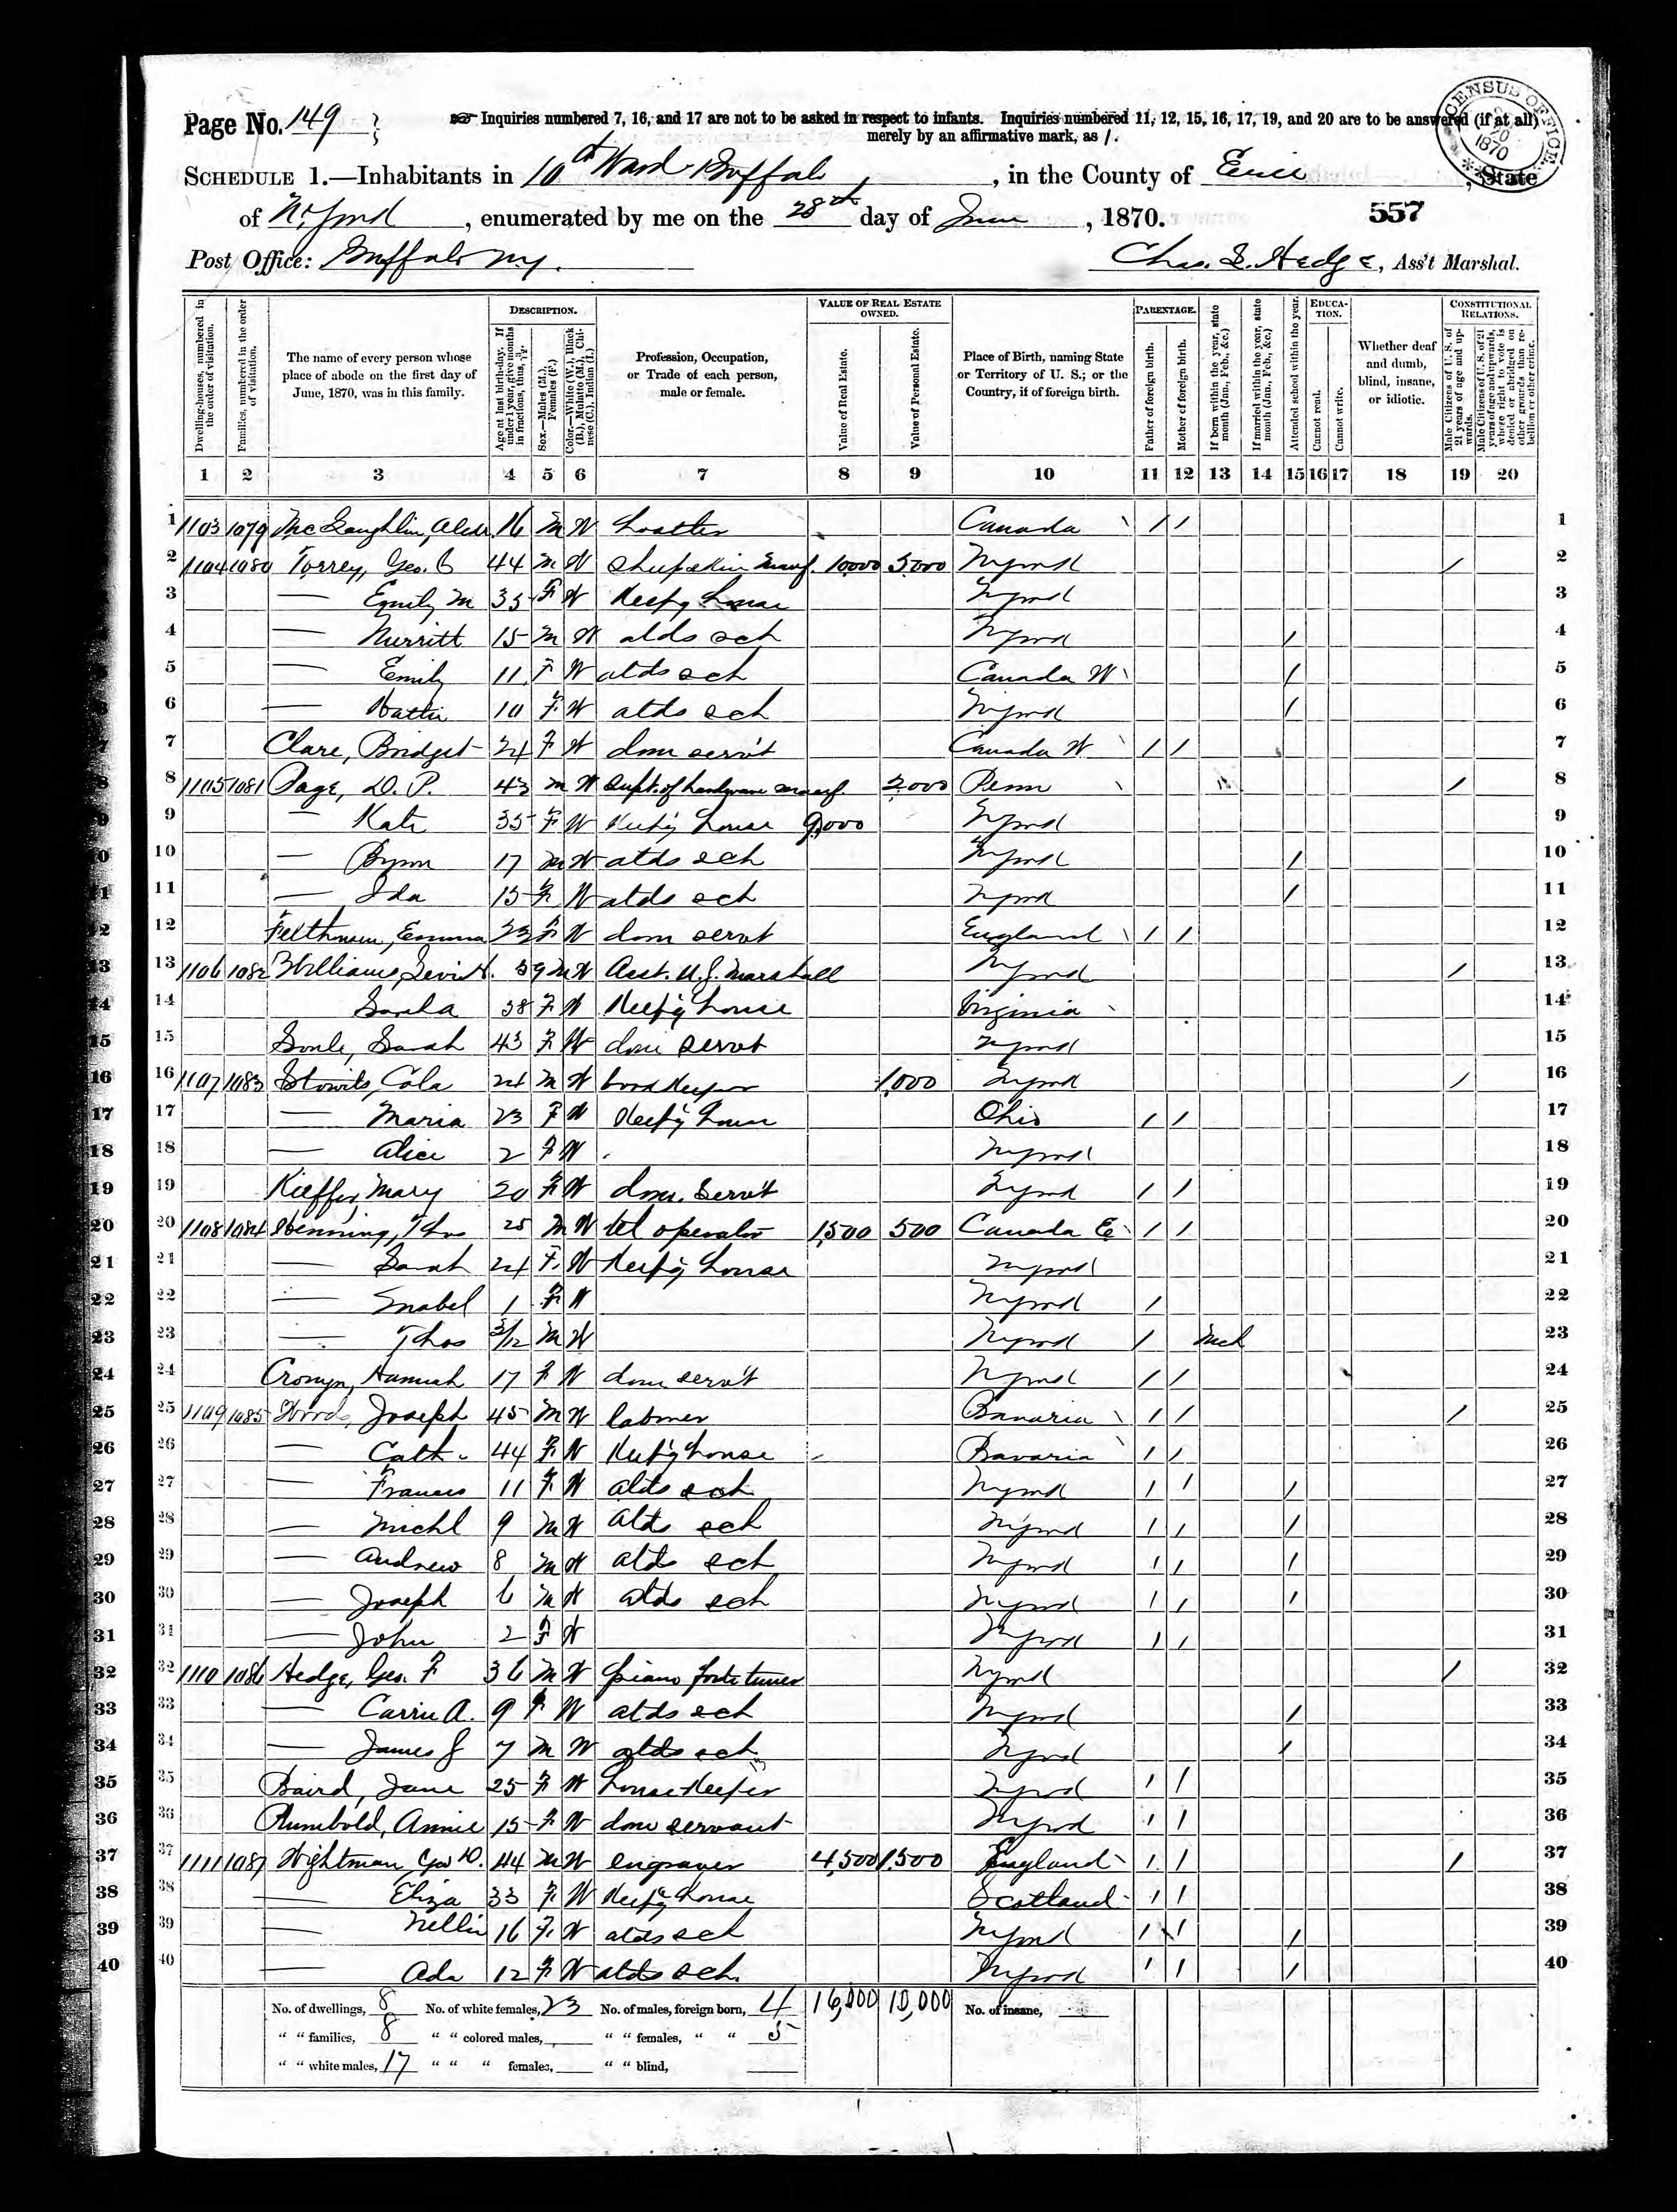 Page No. 149
Inquiries numbered 7, 16, and 17 are not to be asked in respect to infants. Inquiries numbered 11, 12, 15, 16, 17, 19, and 20 are to be answered (if at all)
merely by an affirmative mark, as /.
CENSUS OFFICE 20 1870
SCHEDULE 1.—Inhabitants in 10th Ward Buffalo, in the County of Erie, State
of N. York, enumerated by me on the 28th day of June, 1870. 557
Post Office: Buffalo NY. Chas. Hedge, Ass't Marshal.
DESCRIPTION. VALUE OF REAL ESTATE OWNED. PARENTAGE. EDUCATION. CONSTITUTIONAL RELATIONS.
Dwelling-houses, numbered in the order of visitation.
Families, numbered in the order of visitation.
The name of every person whose place of abode on the first day of June, 1870, was in this family.
Age at last birth-day. If under 1 year, give months in fractions, thus, 3/12.
Sex.—Males (M.), Females (F.)
Color.—White (W.), Black (B.), Mulatto (M.), Chinese (C.), Indian (I.)
Profession, Occupation, or Trade of each person, male or female.
Value of Real Estate.
Value of Personal Estate.
Place of Birth, naming State or Territory of U. S.; or the Country, if of foreign birth.
Father of foreign birth.
Mother of foreign birth.
If born within the year, state month (Jan., Feb., &c.)
If married within the year, state month (Jan., Feb., &c.)
Attended school within the year.
Cannot read.
Cannot write.
Whether deaf and dumb, blind, insane, or idiotic.
Male Citizens of U. S. of 21 years of age and upwards.
Male Citizens of U. S. of 21 years of age and upwards, where right to vote is denied or abridged on other grounds than rebellion or other crime.
1 2 3 4 5 6 7 8 9 10 11 12 13 14 15 16 17 18 19 20
1 1103 1079 McLaughlin, Alexr 16 M W hostler Canada / / 1
2 1104 1080 Torrey, Geo. 44 M W Sheepskin Manf. 10000 5000 N York / 2
3 — Emily M 35 F W Keep'g house N York 3
4 — Merritt 15 M W atds sch N York / 4
5 — Emily 11 F W atds sch Canada W / 5
6 — Hattie 10 F W atds sch N York / 6
7 Clare, Bridget 24 F W dom serv't Canada W / / 7
8 1105 1081 Page, D. P. 43 M W Supt. of hardware manf. 2000 Penn / 8
9 — Kate 35 F W Keep'g house 9,000 N York 9
10 — Byron 17 M W atds sch N York / 10
11 — Ida 15 F W atds sch N York / 11
12 Emma 23 F W dom servt England / / 12
13 1106 1082 Williams, Levi 59 M W Asst. U.S. Marshall N York / 13
14 38 F W Keep'g house Virginia 14
15 Sarah 43 F W dom servt N York 15
16 1107 1083 Cola 24 M W book keeper 1,000 N York / 16
17 — Maria 23 F W Keep'g house Ohio / / 17
18 — Alice 2 F W N York 18
19 Kieffer, Mary 20 F W dom. Serv't N York / / 19
20 1108 1084 Henning, Thos 25 M W tel operator 1,500 500 Canada E / / 20
21 — Sarah 24 F W Keep'g house N York 21
22 — Mabel 1 F W N York / 22
23 — Thos 3/12 M W N York / Mch 23
24 Hannah 17 F W dom serv't N York / / 24
25 1109 1085 Joseph 45 M W laborer Bavaria / / / 25
26 — Cath. 44 F W Keep'g house Bavaria / / 26
27 — Frances 11 F W atds sch N York / / / 27
28 — Michl 9 M W atds sch N York / / / 28
29 — Andrew 8 M W atds sch N York / / / 29
30 — Joseph 6 M W atds sch N York / / / 30
31 — John 2 F W N York / / 31
32 1110 1086 Hedge, Geo. F 36 M W piano forte tuner N York / 32
33 — Carrie A. 9 F W atds sch N York / 33
34 — James J 7 M W atds sch N York / 34
35 Baird, Jane 25 F W house Keeper N York / / 35
36 Rumbold, Annie 15 F W dom servant N York / / 36
37 1111 1087 Wightman, Geo D. 44 M W engraver 4,500 1,500 England / / / 37
38 — Eliza 33 F W Keep'g house Scotland / / 38
39 — Nellie 16 F W atds sch N York / / / 39
40 — Ada 12 F W atds sch. N York / / / 40
No. of dwellings, 8 No. of white females, 23 No. of males, foreign born, 4 16,000 10,000 No. of insane,
" " families, 8 " " colored males, " " females, " " 5
" " white males, 17 " " " females, " " blind,